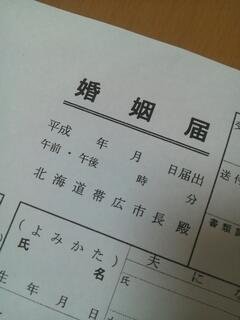 婚姻届
平成 年 月 日届出
午前・午後 時 分
北海道帯広市長殿
受
送付
書類調
(よみかた)
氏 名
生年月日
夫に
氏